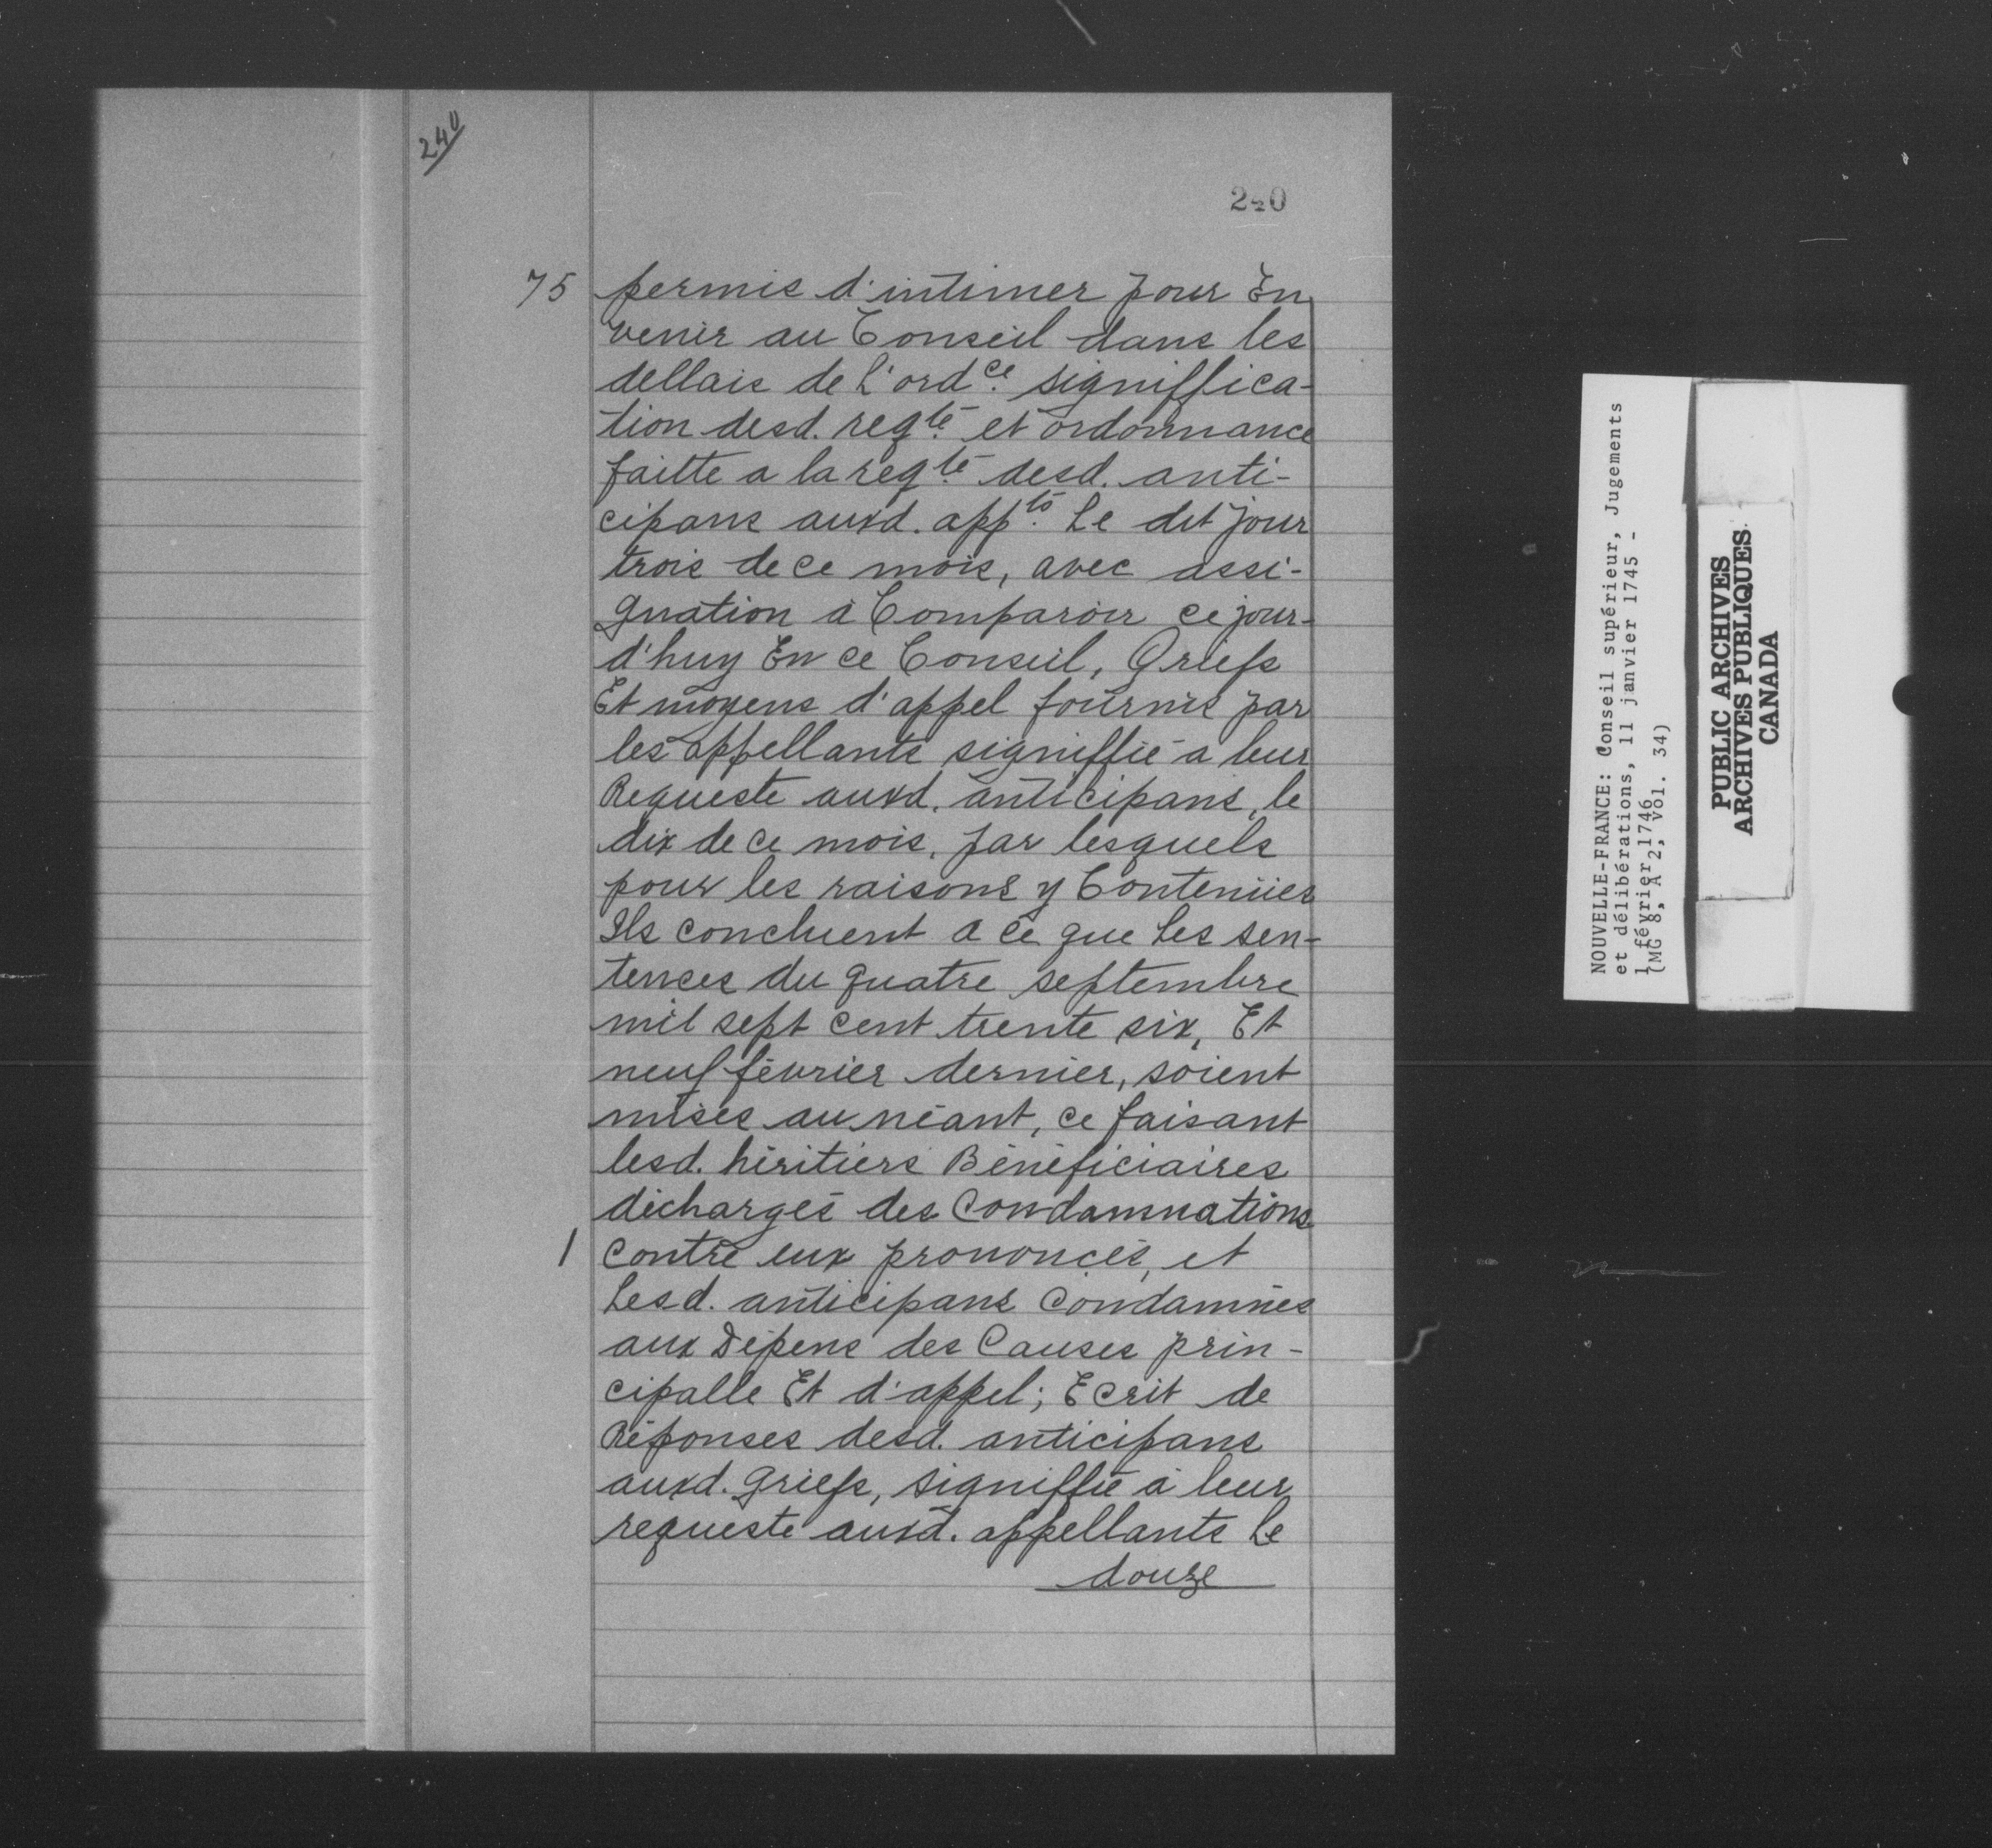 240
240
75 permis d'intimer pour En
venir au Conseil dans les
dellais de L'ordce. signiffica-
tion desd. reqte. et ordonnance
faitte a la reqte. desd. anti-
cipans auxd. appts. Le dit jour
trois de ce mois, avec assi-
gnation à Comparoir ce jour-
d'huy En ce Conseil, Griefs
Et moyens d'appel fournis par
les appellants signiffié a leur
Requeste auxd. anticipans, le
dix de ce mois, par lesquels
pour les raisons y Contenües
Ils concluent a ce que Les sen-
tences du quatre septembre
mil sept cent trente six, Et
neuf février dernier, soient
mises au néant, ce faisant
lesd. héritiers Bénéficiaires
déchargés des Condamnations
1 Contre eux prononcés, et
Lesd. anticipans Condamnés
aux Dépens des Causes prin-
cipalle Et d'appel; Ecrit de
Réponses desd. anticipans
auxd. Griefs, signiffié à leur
requeste auxd. appellants Le
douze
NOUVELLE-FRANCE: Conseil supérieur, Jugements
et délibérations, 11 janvier 1745 -
1 février 1746
(MG 8, A 2, vol. 34)
PUBLIC ARCHIVES
ARCHIVES PUBLIQUES
CANADA